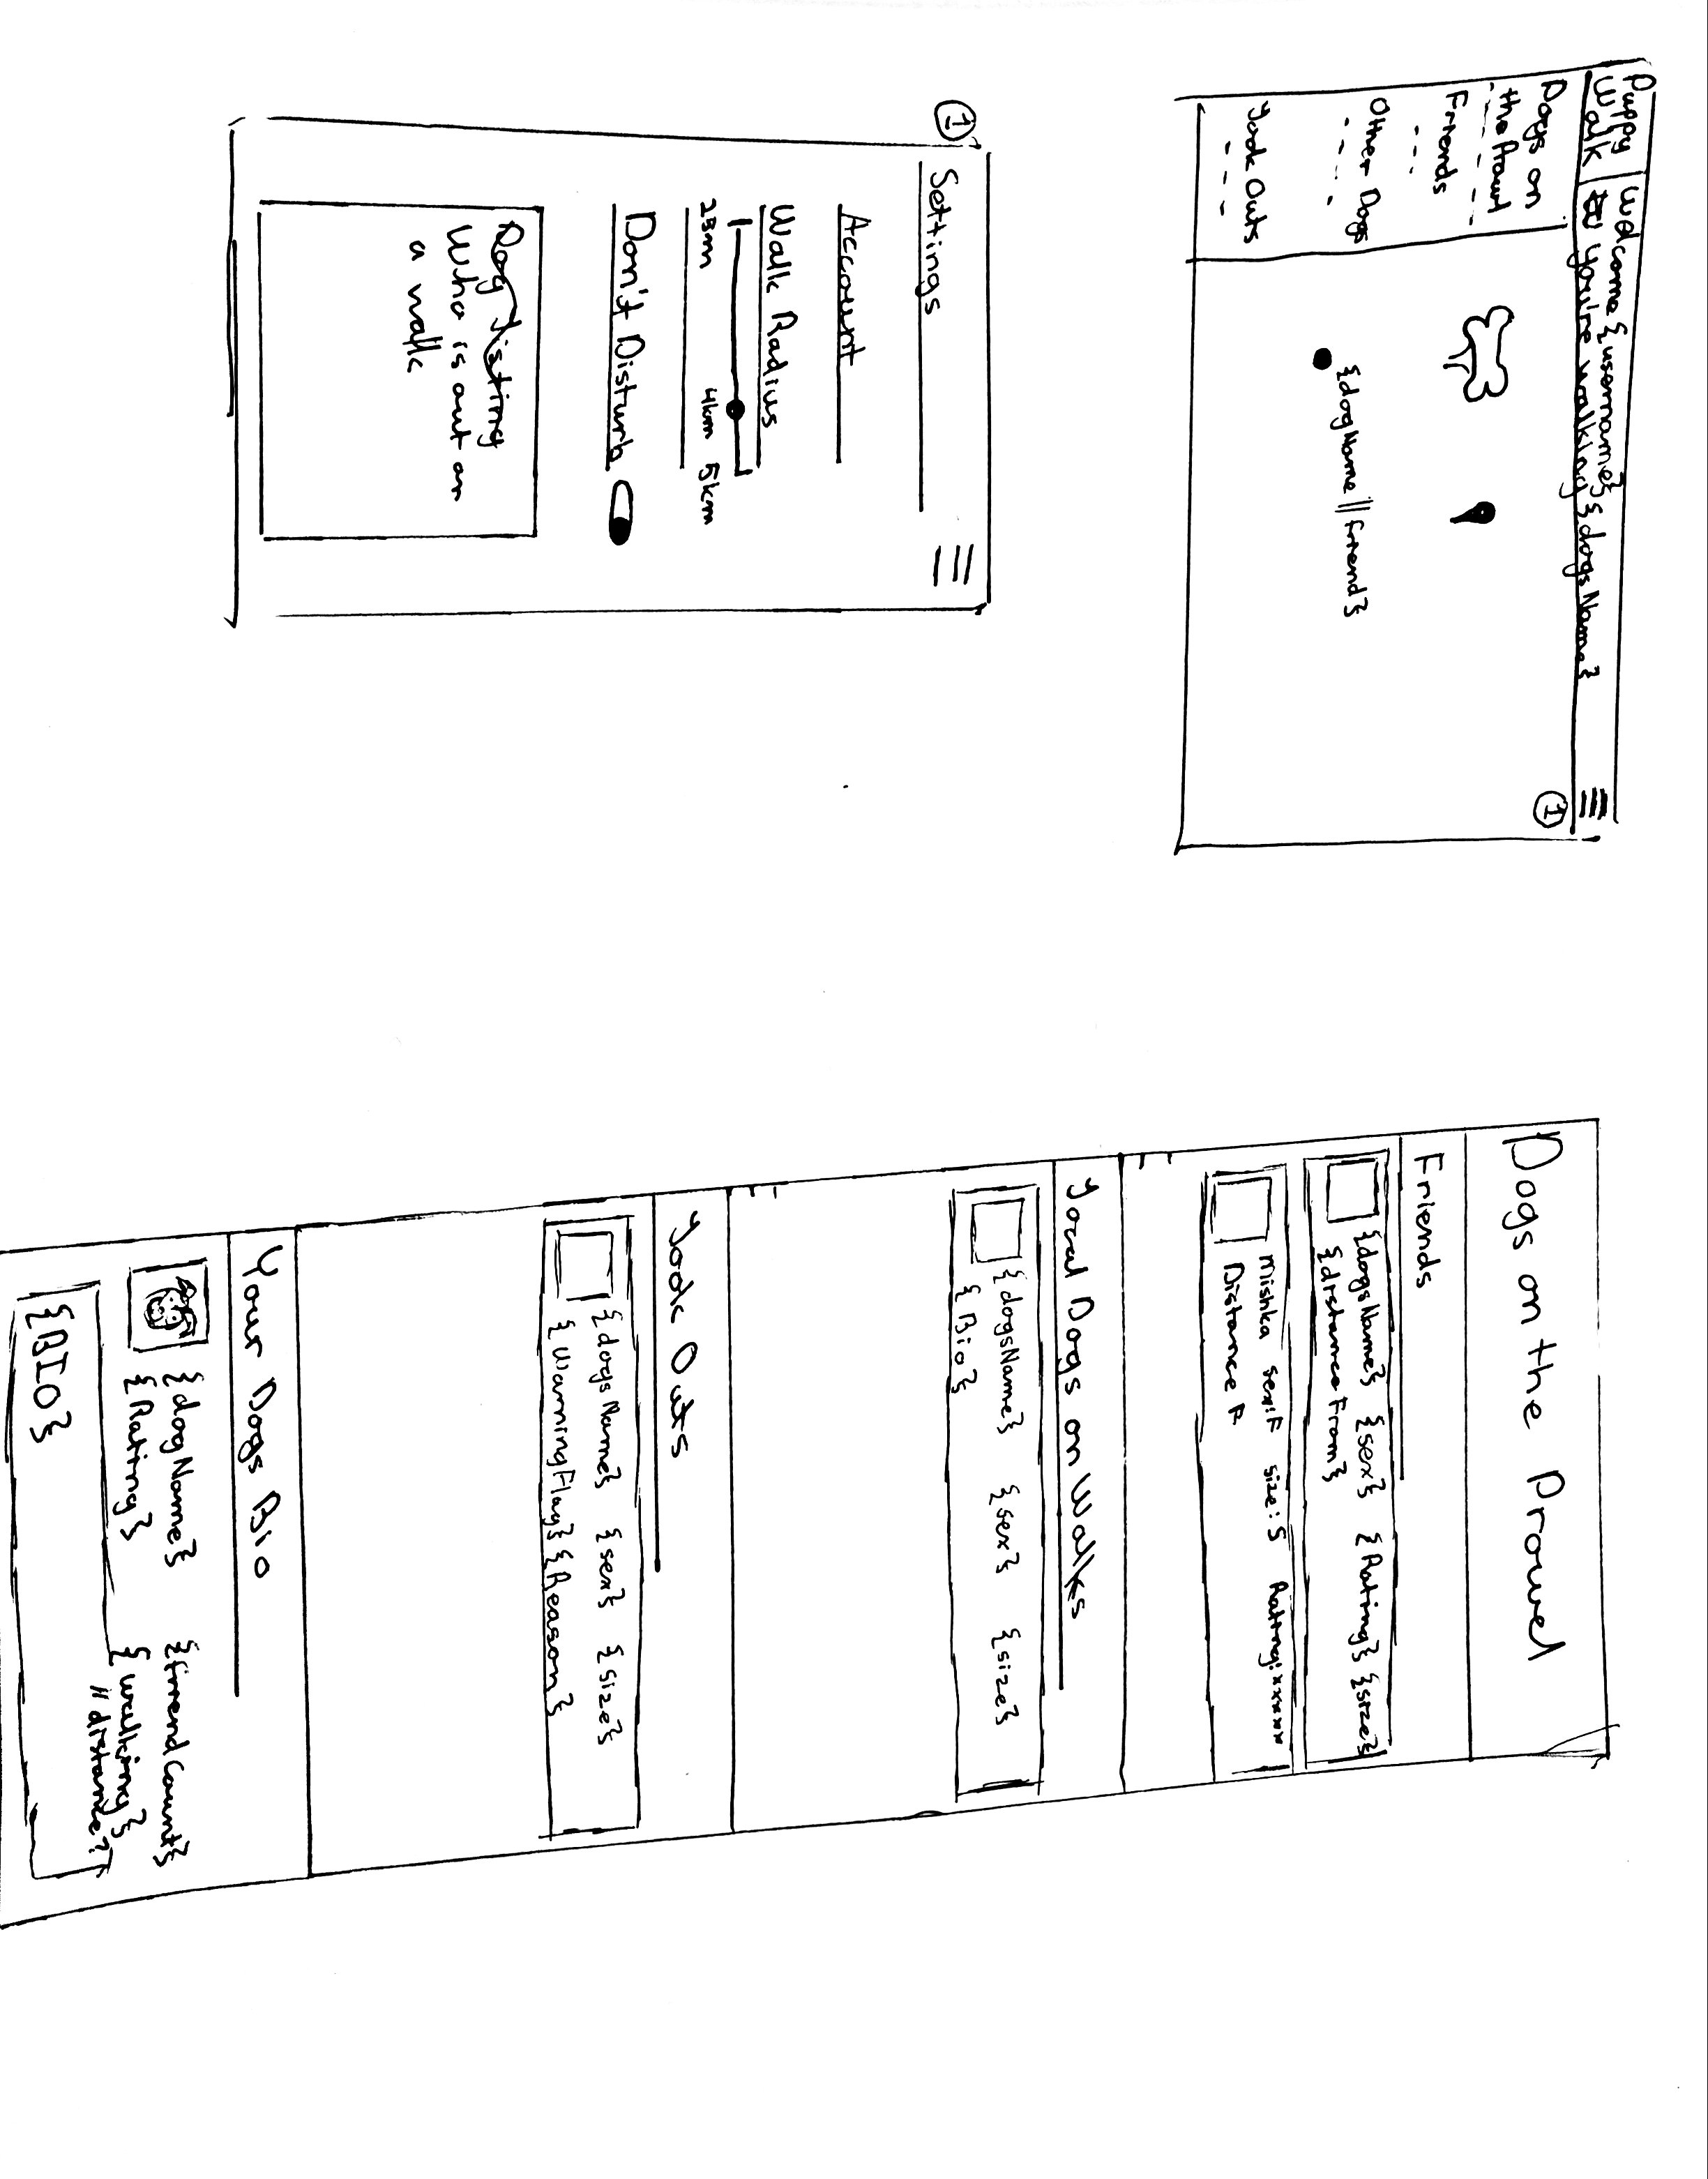 Puppy
Walk
Welcome {username}
You're walking {dogsName}
Dogs on
the Prowl
Friends
Other Dogs
Look Outs
{dogName || friend}
1
1
Settings
Account
Walk Radius
4km 5km
Don't Disturb
Dog Listing
Who is out on
a walk
Dogs on the Prowel
Friends
{dogsName} {sex} {Rating} {size}
{distanceFrom}
Mishka sex:F size:S Rating:xxxxx
Distance F
Local Dogs on Walks
{dogsName} {sex} {size}
{Bio}
Look Outs
{dogsName} {sex} {size}
{WarningFlag} {Reason}
Your Dogs Bio
{dogName} {friendCount}
{Rating} {walking}
// distance?
{BIO}